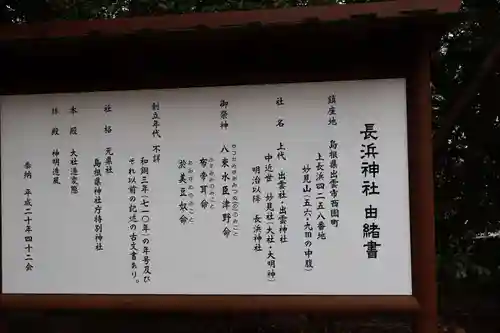 長浜神社 由緒書
鎮座地 島根県出雲市西園町
上長浜四二五八番地
妙見山(五六・九mの中腹)
社名 上代 出雲社・出雲神社
中近世 妙見社(大社・大明神)
明治以降 長浜神社
御祭神 八束水臣津野命
やつかみずおみつぬのみこと
布帝耳命
ふてみみのみこと
淤美豆奴命
おみずぬのみこと
創立年代 不詳
和銅三年(七一〇年)の年号及び
それ以前の記述の古文書あり。
社格 元県社
島根県神社庁特別神社
本殿 大社造変態
拝殿 神明造風
奉納 平成二十年四十二会